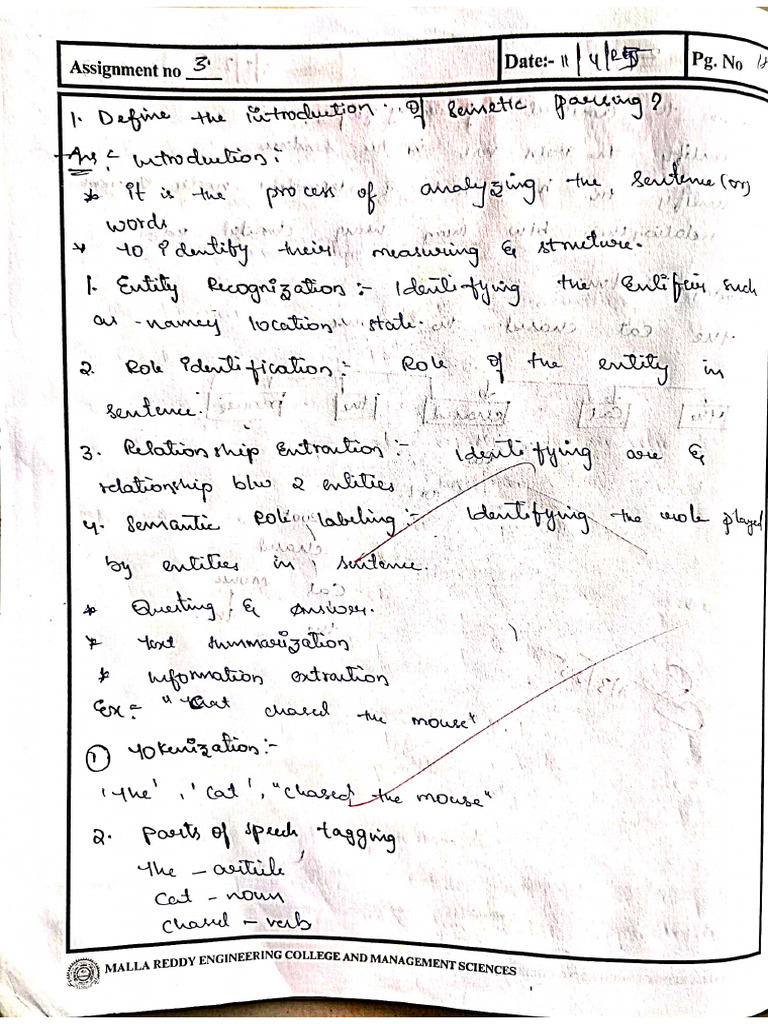 Assignment no 3.
Date:- 11/4/25
Pg. No
1. Define the introduction of Semetic parsing?
Ans:- introduction:-
* It is the process of analyzing the, sentence (or)
words.
* To identify their measuring & structure.
1. Entity Recognization:- Identifying the Entities such
as names location state.
2. Role identification:- Role of the entity in
sentence.
3. Relationship Extraction:- Identifying are &
relationship b/w 2 entities
4. Semantic Role labeling:- Identifying the role played
by entities in sentence.
* Questing & Answer.
* Text summarization
* information extraction
Ex:- " cat chased the mouse"
① Tokenization:-
'The', 'cat', "chased the mouse"
2. parts of speech tagging
The - article
cat - noun
chased - verb
MALLA REDDY ENGINEERING COLLEGE AND MANAGEMENT SCIENCES